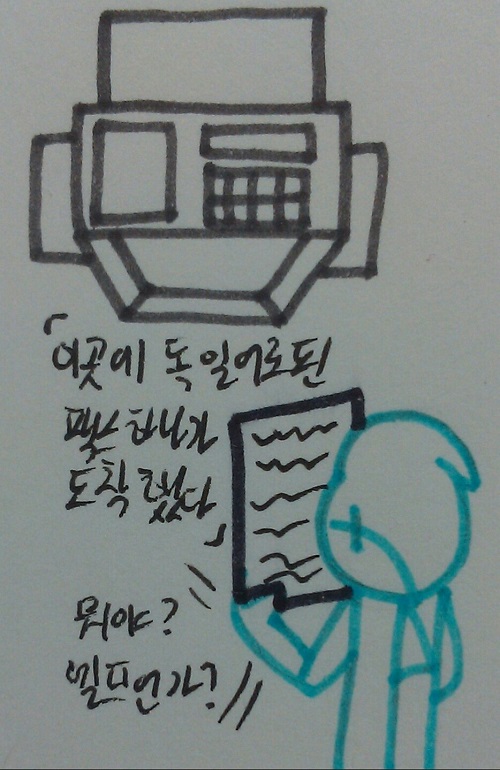 「이곳에 독일어로된
팩스 하나가
도착했다」
뭐야?
벨프언가?